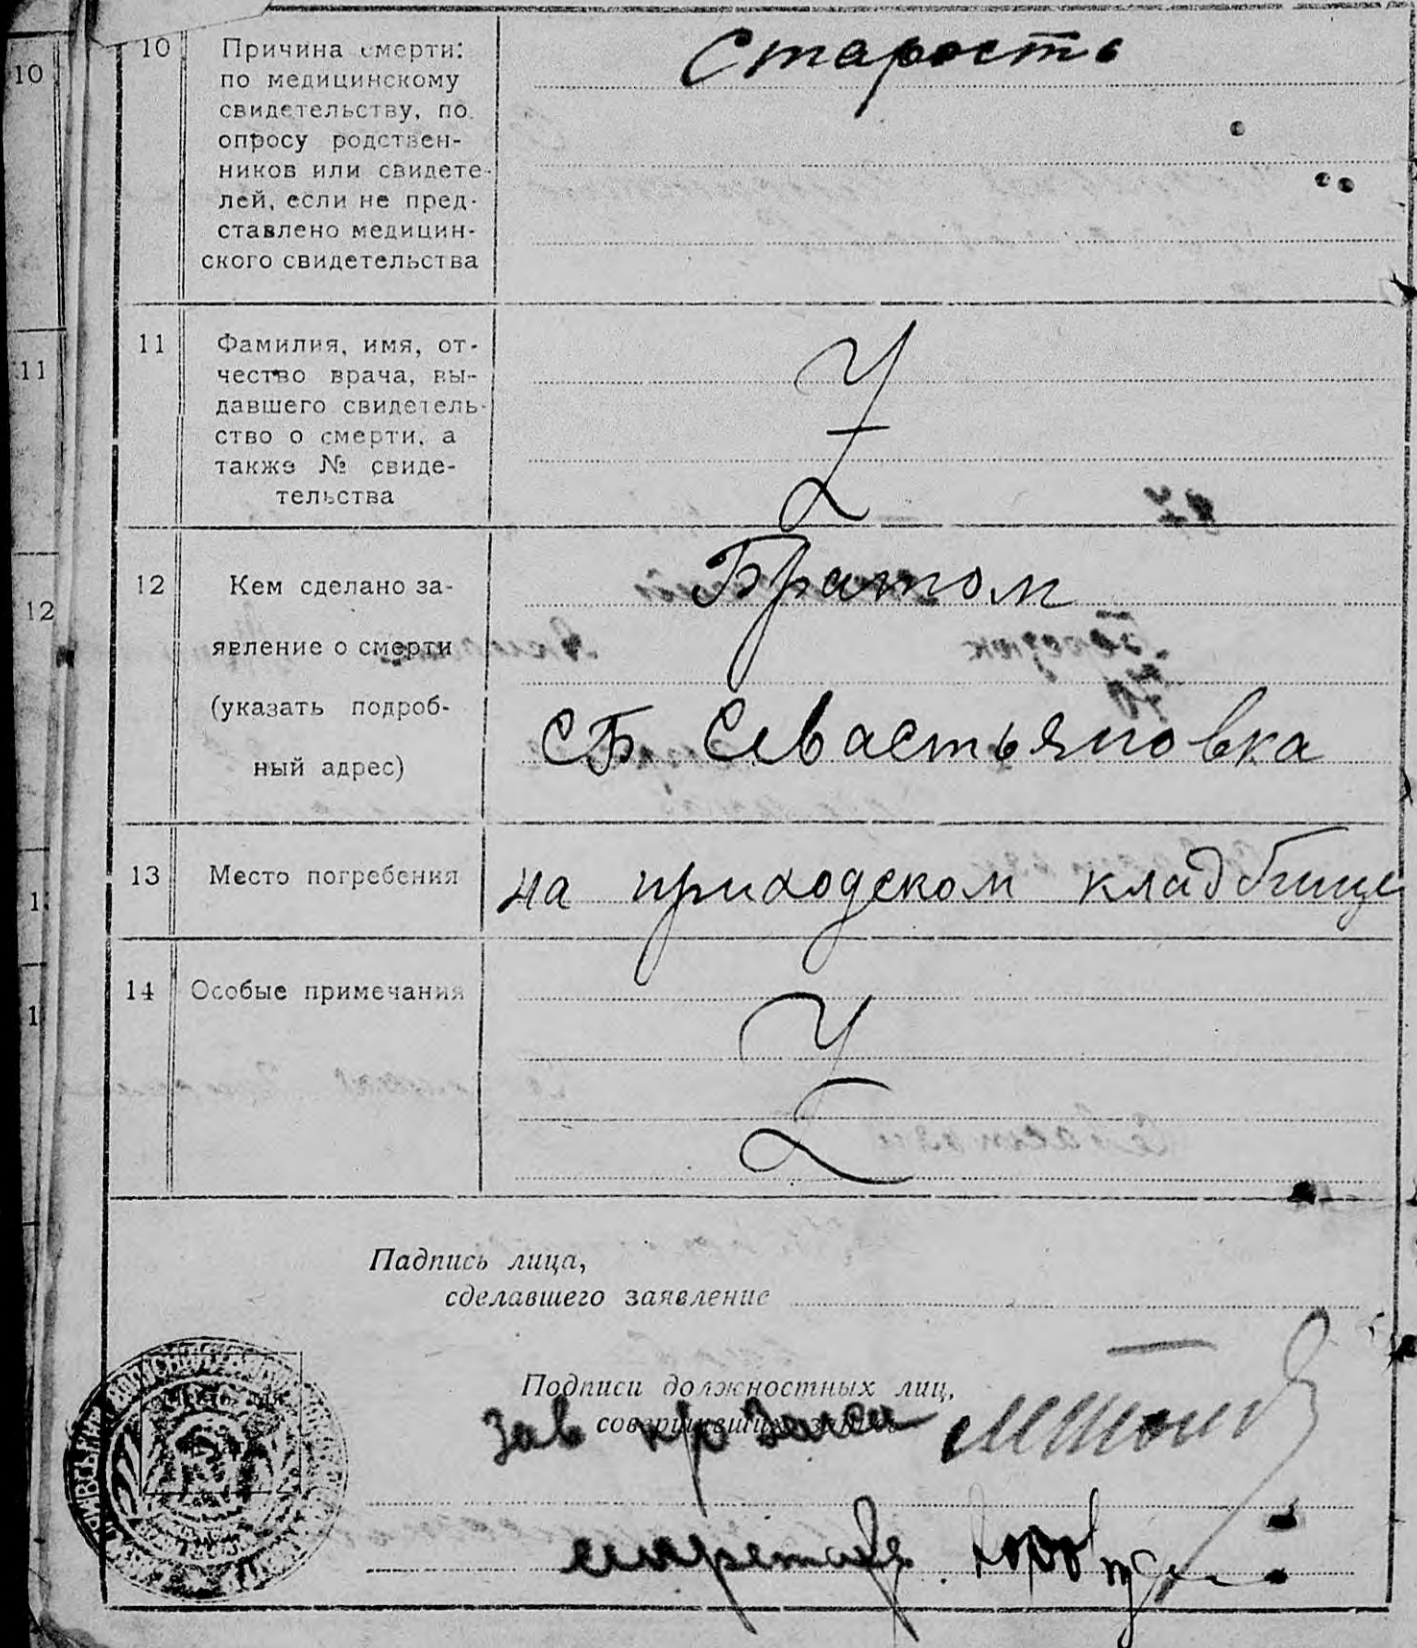 10
Причина смерти:
по медицинскому
свидетельству, по
опросу родствен-
ников или свидете-
лей, если не пред-
ставлено медицин-
ского свидетельства
Старость
11
Фамилия, имя, от-
чество врача, вы-
давшего свидетель-
ство о смерти, а
также № свиде-
тельства
12
Кем сделано за-
явление о смерти
(указать подроб-
ный адрес)
Братом
с Б Севастьяновка
13
Место погребения
на приходском кладбище
14
Особые примечания
Падпись лица,
сделавшего заявление
Подписи должностных лиц,
совершивших запись
Зав
секретарь
10
11
12
1
1